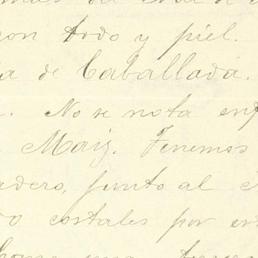 con todo y piel.
a de Caballada.
. No se nota en
Maiz. Tenemos
adero, junto al
o costales por en